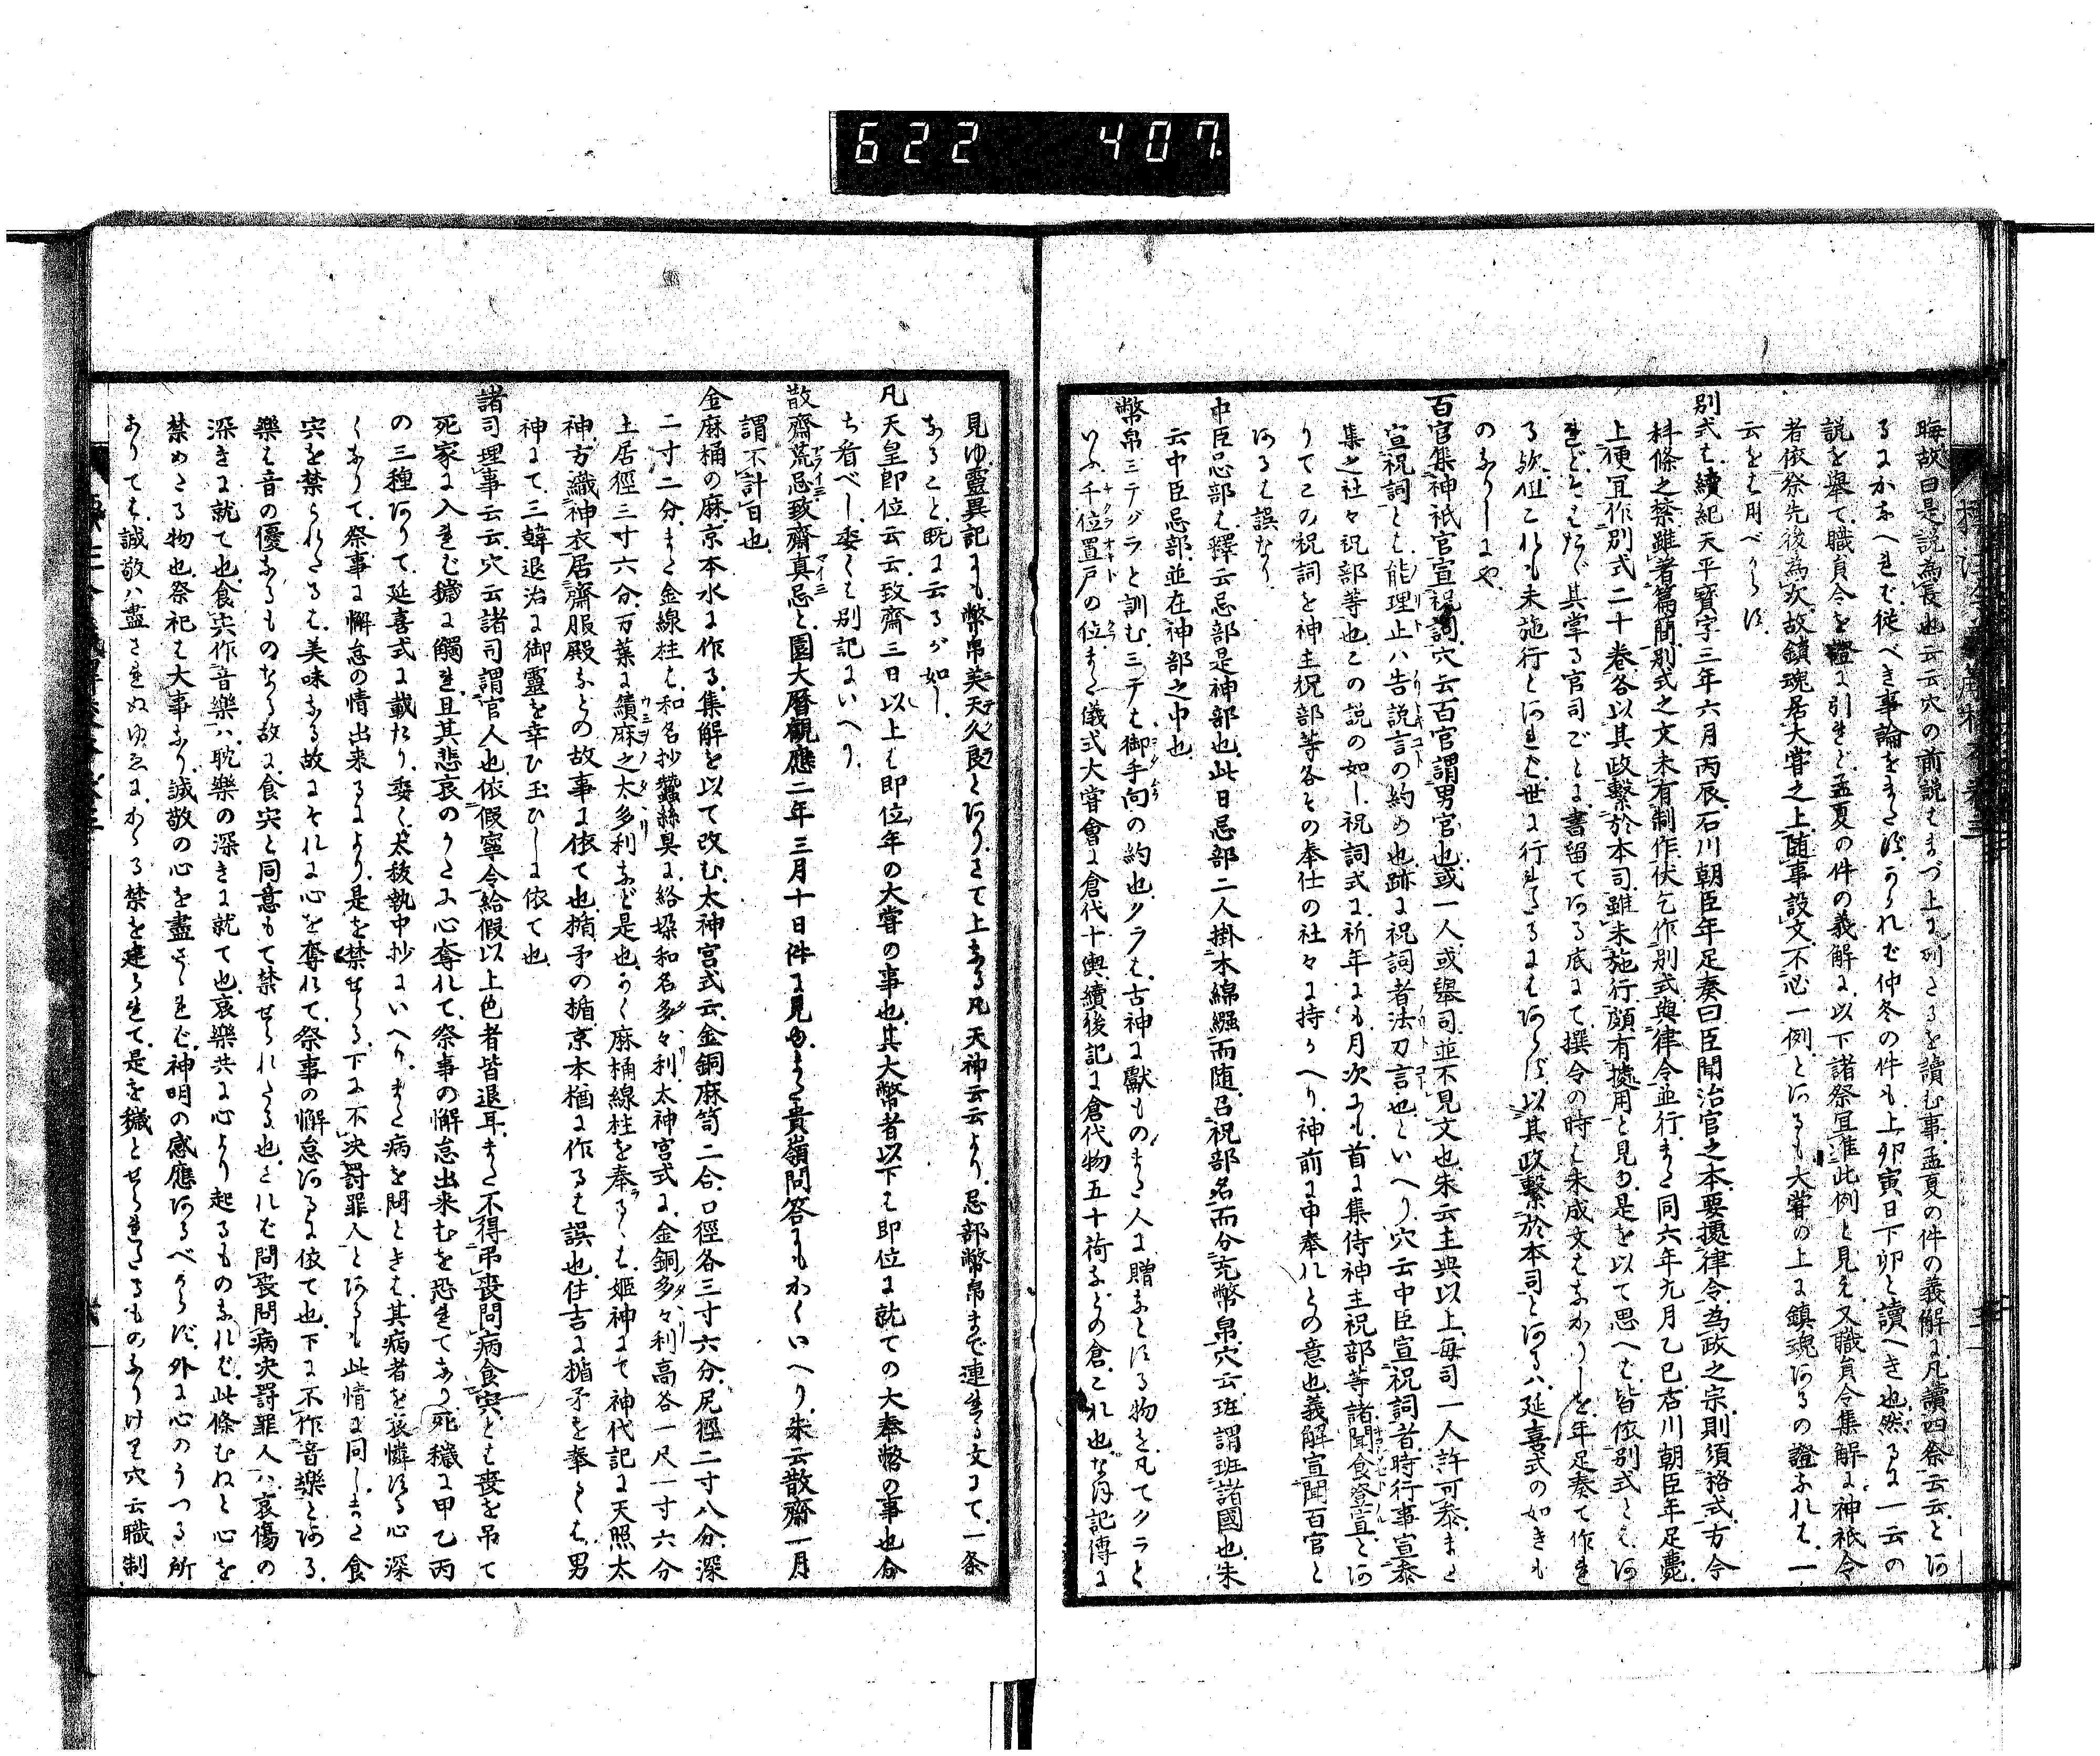 622 407.
晦故曰是説為長也云云穴の前説はまづ上に列たるを讀む事孟夏の件の義解に凡讀四祭云云とあ
るにかなへれば従べき事論をまたずかゝれば仲冬の件も上卯寅日下卯と讀べき也然るに一云の
説を擧て職員令を證に引れど孟夏の件の義解に以下諸祭宜准此例と見え又職員令集解に神祇令
者依祭先後為次故鎮魂居大嘗之上随事設文不必一例とあるも大嘗の上に鎮魂あるの證なれば一
云をば用べからず
別式は續紀天平寶字三年六月丙辰石川朝臣年足奏曰臣聞治官之本要據律令為政之宗則須格式方今
科條之禁雖著篇簡別式之文未有制作伏乞作別式與律令並行また同六年九月乙巳石川朝臣年足薨
上便宜作別式二十巻各以其政繫於本司雖未施行頗有據用と見ゆ是を以て思へば皆依別式とはあ
れどそはたゞ其掌る官司ごとに書留てある底にて撰令の時は未成文はなかりしを年足奏て作れ
る歟但これも未施行とあれば世に行れたるにはあらず以其政繫於本司とあるハ延喜式の如きも
のなりしにや
百官集神祇官宣祝詞穴云百官謂男官也或一人或擧司並不見文也朱云主典以上毎司一人許可参また
宣祝詞とは能理止ハ告説言の約め也跡に祝詞者法刀言也といへり穴云中臣宣祝詞者時行事宣参
集之社々祝部等也この説の如し祝詞式に祈年にも月次にも首に集侍神主祝部等諸聞食登宣とあ
りてこの祝詞を神主祝部等各その奉仕の社々に持かへり神前に申奉れとの意也義解宣聞百官と
あるは誤なり
中臣忌部は釋云忌部是神部也此日忌部二人掛木綿繦而随召祝部名而分充幣帛穴云班謂班諸國也朱
云中臣忌部並在神部之中也
幣帛ミテグラと訓むミテは御手向の約也クラは古神に獻ものまた人に贈などする物を凡てクラと
いふ千位置戸の位また儀式大嘗會に倉代十輿續後記に倉代物五十荷などの倉これ也なほ記傳に
見ゆ靈異記にも幣帛美天久良とありさて上なる凡天神云云より忌部幣帛まで連れる文にて一条
なること既に云るが如し
凡天皇即位云云致齋三日以上は即位年の大嘗の事也其大幣者以下は即位に就ての大奉幣の事也分
ち看べし委くは別記にいへり
散齋荒忌致齋真忌と園大暦觀應二年三月十日件に見ゆまた貴嶺問答にもかくいへり朱云散齋一月
謂不計日也
金麻桶の麻京本水に作る集解を以て改む太神宮式云金銅麻笥二合口徑各三寸六分尻徑二寸八分深
二寸二分また金線柱は和名抄蠶絲具に絡垜和名多々利太神宮式に金銅多々利高各一尺一寸六分
土居徑三寸六分万葉に績麻之太多利など是也かく麻桶線柱を奉るは姫神にて神代記に天照太
神方織神衣居齋服殿などの故事に依て也楯矛の楯京本楯に作るは誤也住吉に楯矛を奉るは男
神にて三韓退治に御靈を幸ひ玉ひしに依て也
諸司理事云云穴云諸司謂官人也依假寧令給假以上色者皆退耳また不得弔喪問病食宍とは喪を吊て
死家に入れば穢に觸れ且其悲哀のかたに心奪れて祭事の懈怠出来むを恐れてなり死穢に甲乙丙
の三種ありて延喜式に載たり委く犬秡執中抄にいへりまた病を問ときは其病者を哀憐する心深
くなりて祭事に懈怠の情出来るにより是を禁せらる下に不决罸罪人とあるも此情に同しまた食
宍を禁られたるは美味なる故にそれに心を奪れて祭事の懈怠あるに依て也下に不作音樂とある
樂は音の優なるものなる故に食宍と同意もて禁せられたる也されば問喪問病决罸罪人ハ哀傷の
深きに就て也食宍作音樂ハ耽樂の深きに就て也哀樂共に心より起るものなれば此條むねと心を
禁めたる物也祭祀は大事なり誠敬の心を盡さゞれば神明の感應あるべからず外に心のうつる所
ありては誠敬ハ盡されぬゆゑにかゝる禁を建られて是を穢とせられたるものなりけり穴云職制